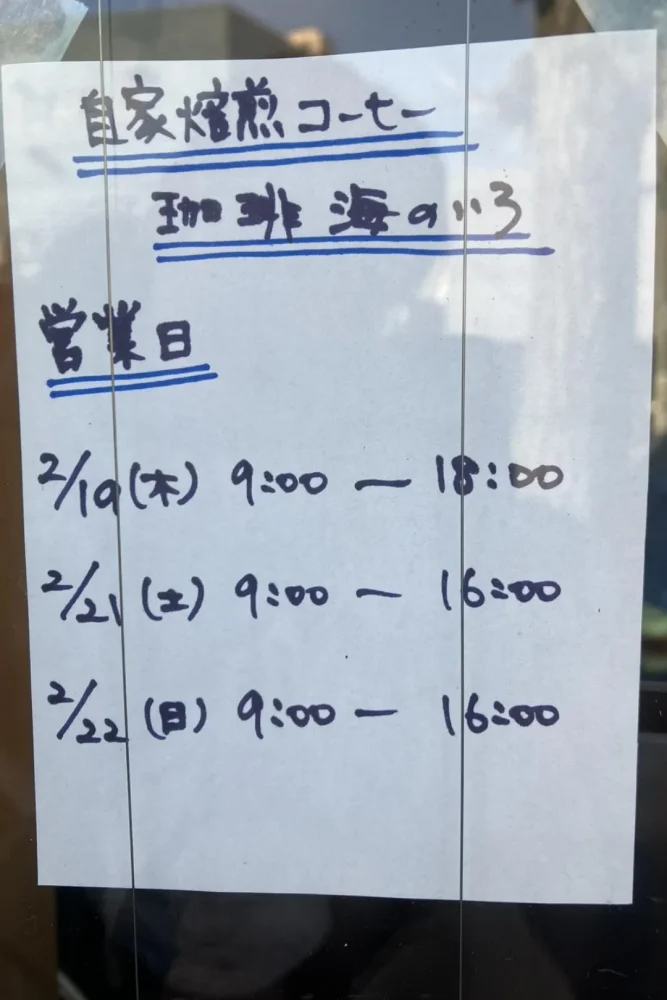 自家焙煎コーヒー
珈琲 海のいろ
営業日
2/19(木) 9:00 ― 18:00
2/21(土) 9:00 ― 16:00
2/22(日) 9:00 ― 16:00